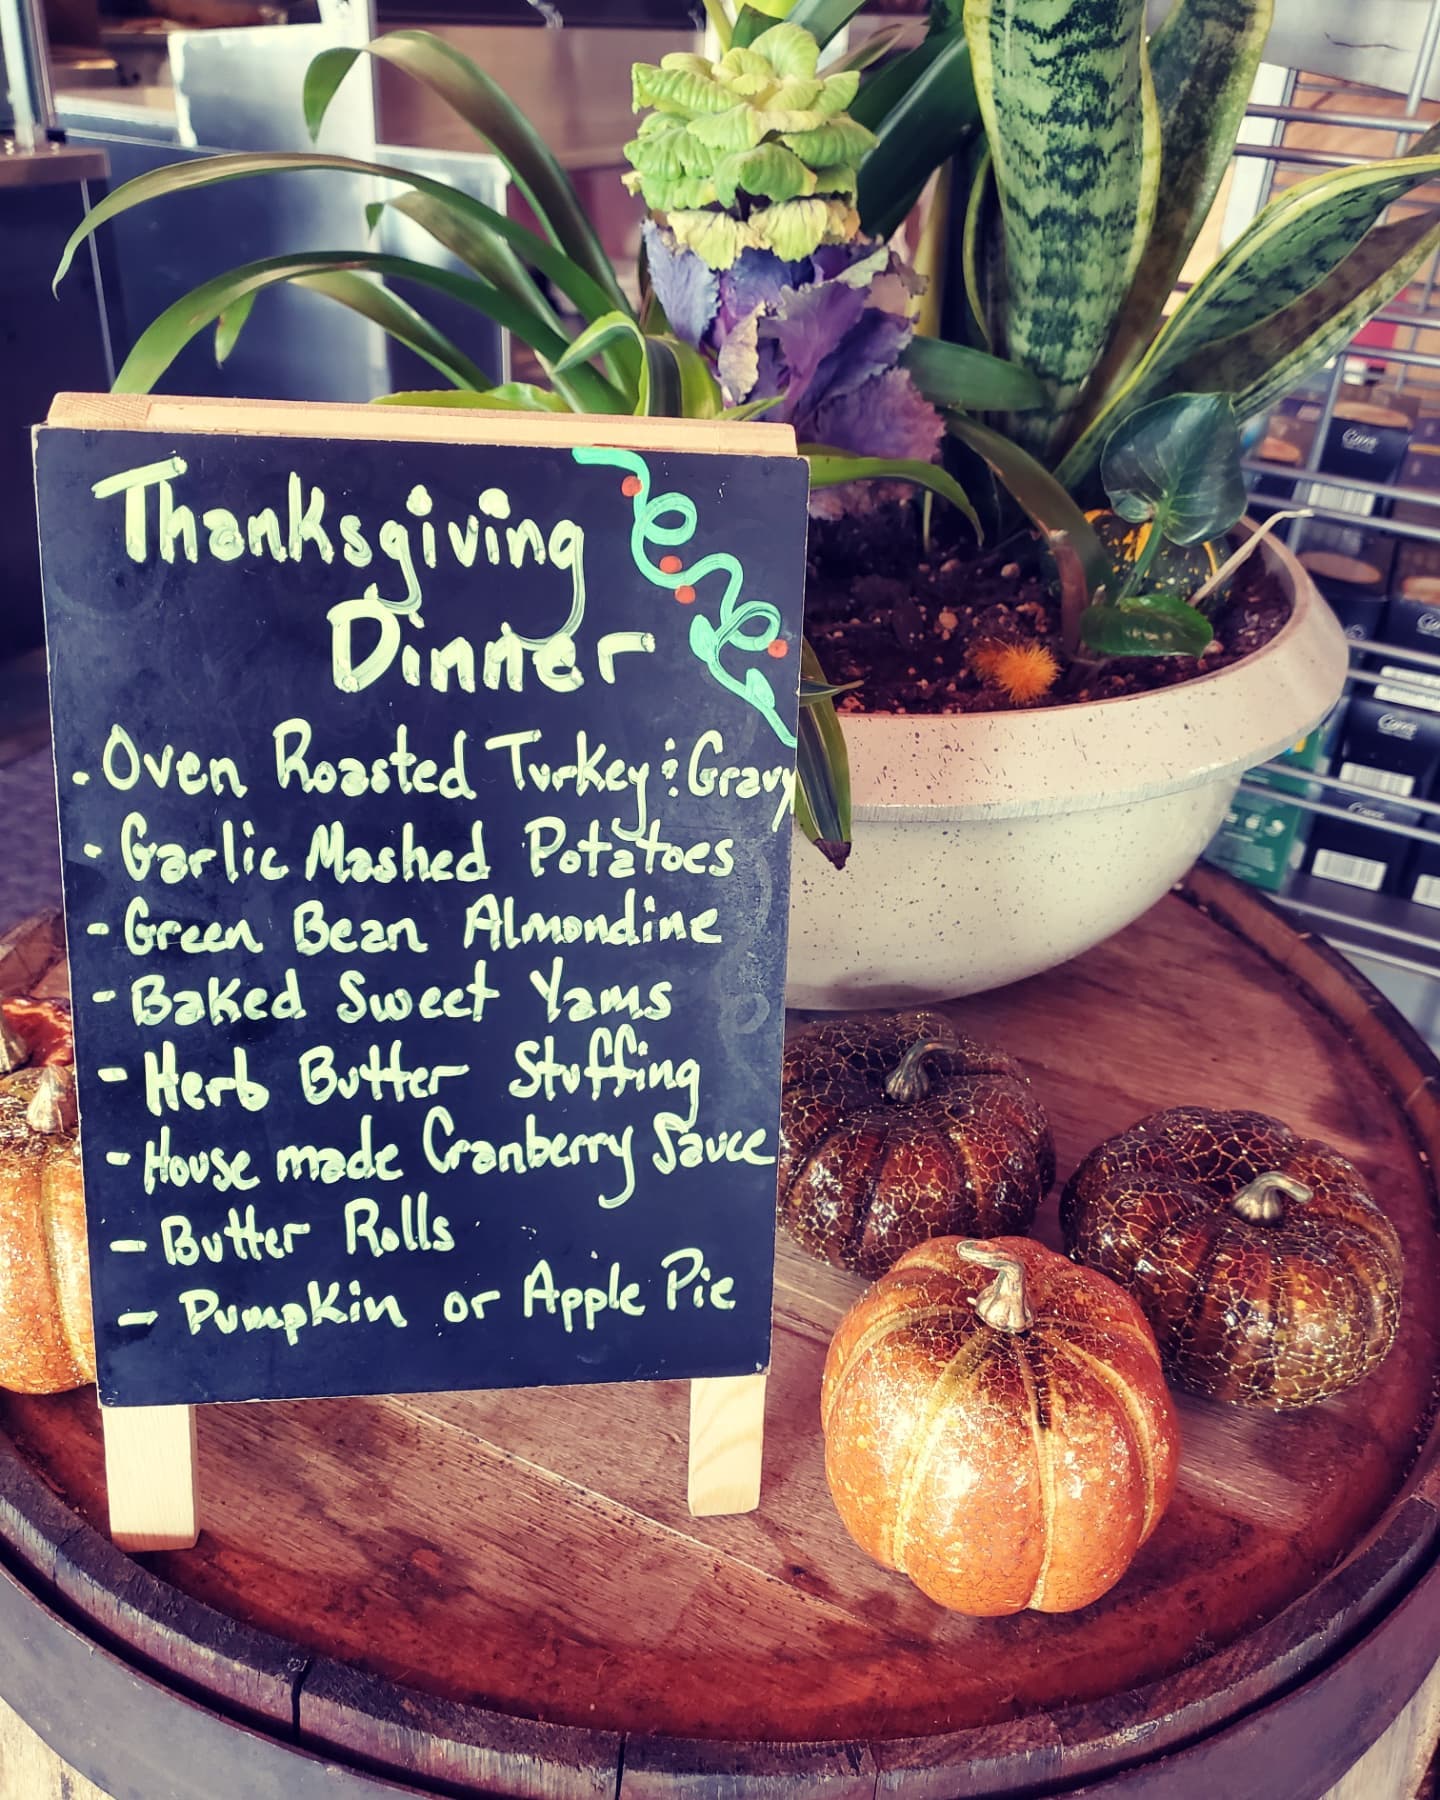 Thanksgiving
Dinner
. Oven Roasted Turkey & Gravy
- Garlic Mashed Potatoes
- Green Bean Almondine
- Baked Sweet Yams
- Herb Butter Stuffing
- House made Cranberry Sauce
- Butter Rolls
- Pumpkin or Apple Pie